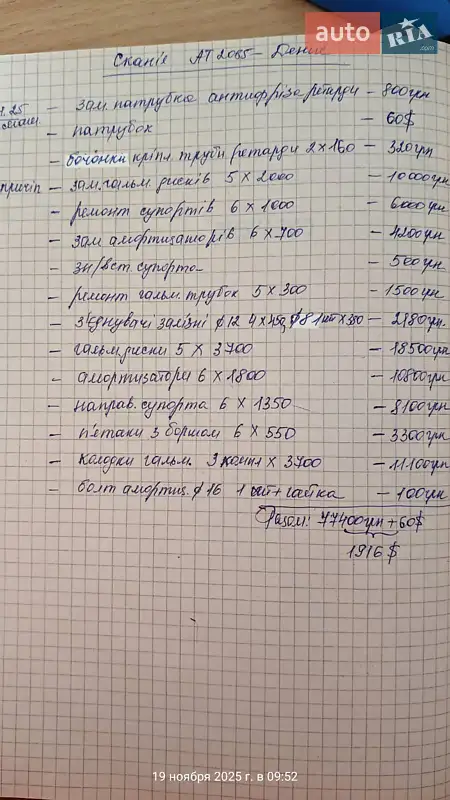 auto RIA .com
Сканія АТ 2065 - Денис
- зам. патрубка антифріза ретарди - 800грн
- патрубок - 60$
- бочонки кріпл. трубк. ретарди 2 x 160 - 320грн
причіп - зам. гальм. дисків 5 x 2000 - 10000грн
- ремонт супортів 6 x 1000 - 6000грн
- зам амортизаторів 6 x 700 - 4200грн
- зн/вст. супорта - 500грн
- ремонт гальм. трубок 5 x 300 - 1500грн
- з'єднувачі залізні ⌀12 4 x 450, ⌀8 1шт x 380 - 2180грн.
- гальм. диски 5 x 3700 - 18500грн
- амортизатори 6 x 1800 - 10800грн
- направ. супорта 6 x 1350 - 8100грн
- п'ятаки з боршом 6 x 550 - 3300грн
- колодки гальм. 3 компл x 3700 - 11100грн
- болт амортиз. ⌀16 1 шт + гайка - 100грн
Разом: 77400грн + 60$
1916$
19 ноября 2025 г. в 09:52